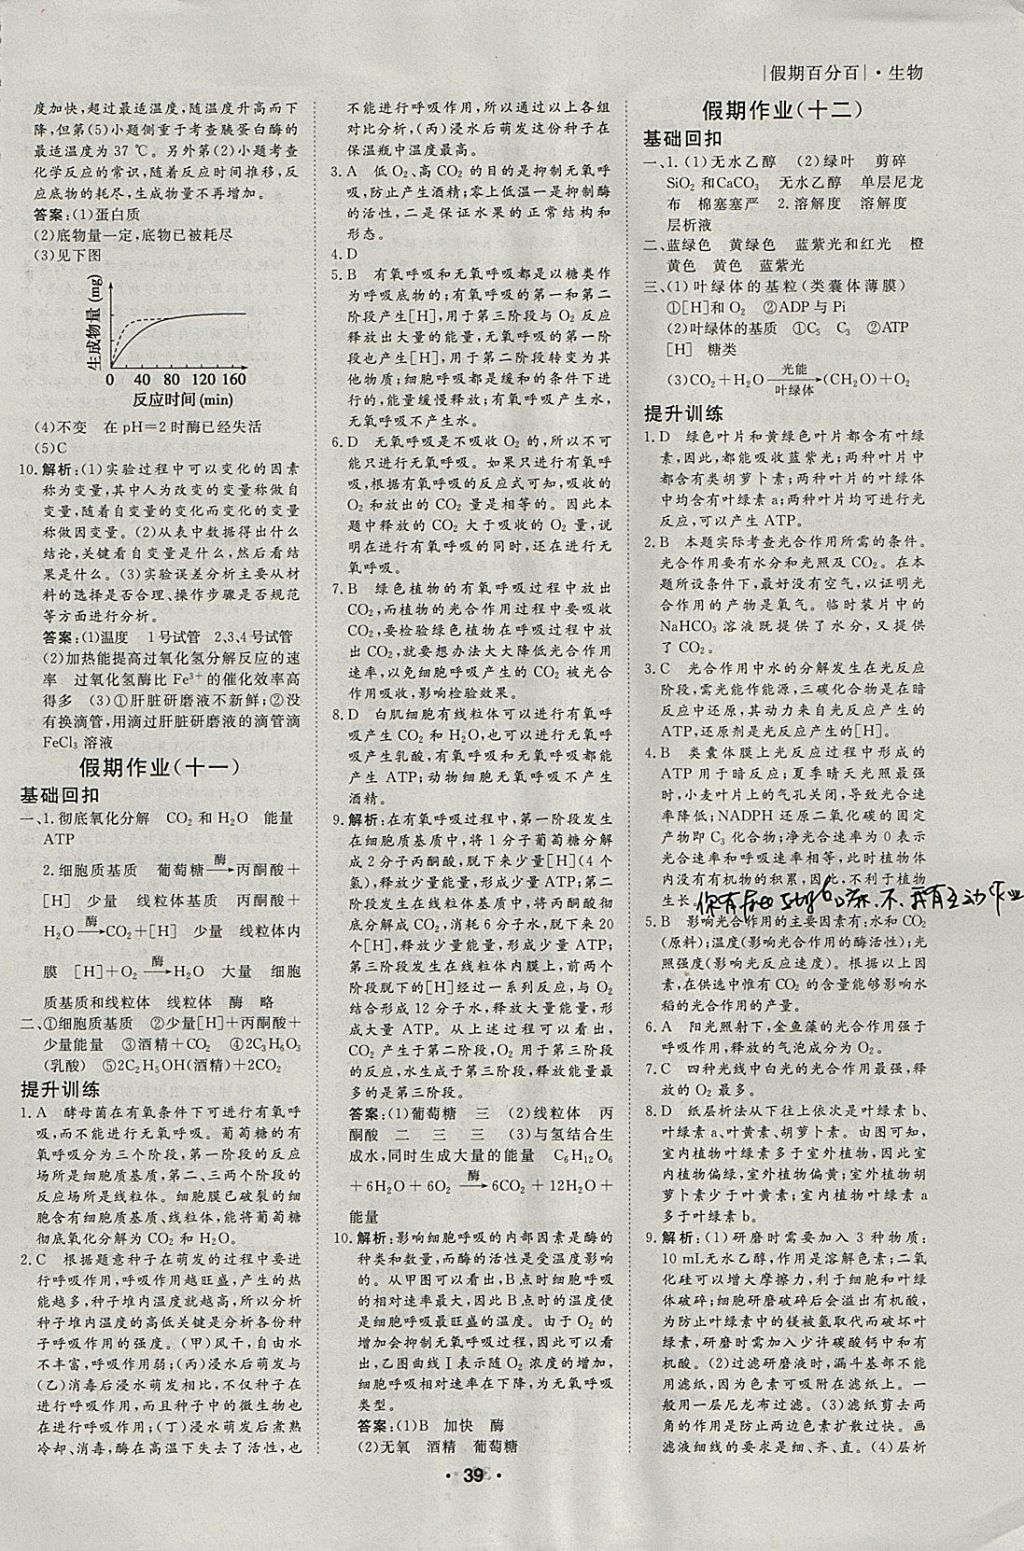 |假期百分百|·生物
度加快,超过最适温度,随温度升高而下
降,但第(5)小题侧重于考查胰蛋白酶的
最适温度为37 ℃。另外第(2)小题考查
化学反应的常识,随着反应时间推移,反
应底物的耗尽,生成物量不再增加。
答案:(1)蛋白质
(2)底物量一定,底物已被耗尽
(3)见下图
生成物量(mg)
0 40 80 120 160
反应时间(min)
(4)不变 在pH=2时酶已经失活
(5)C
10.解析:(1)实验过程中可以变化的因素
称为变量,其中人为改变的变量称做自
变量,随着自变量的变化而变化的变量
称做因变量。(2)从表中数据得出什么
结论,关键看自变量是什么,然后看结
果是什么。(3)实验误差分析主要从材
料的选择是否合理、操作步骤是否规范
等方面进行分析。
答案:(1)温度 1号试管 2、3、4号试管
(2)加热能提高过氧化氢分解反应的速
率 过氧化氢酶比Fe³⁺的催化效率高
得多 (3)①肝脏研磨液不新鲜;②没
有换滴管,用滴过肝脏研磨液的滴管滴
FeCl₃溶液
假期作业(十一)
基础回扣
一、1.彻底氧化分解 CO₂和H₂O 能量
ATP
2.细胞质基质 葡萄糖—酶→丙酮酸+
[H] 少量 线粒体基质 丙酮酸+
H₂O—酶→CO₂+[H] 少量 线粒体内
膜 [H]+O₂—酶→H₂O 大量 细胞
质基质和线粒体 线粒体 酶 略
二、①细胞质基质 ②少量[H]+丙酮酸+
少量能量 ③酒精+CO₂ ④2C₃H₆O₃
(乳酸) ⑤2C₂H₅OH(酒精)+2CO₂
提升训练
1.A 酵母菌在有氧条件下可进行有氧呼
吸,而不能进行无氧呼吸。葡萄糖的有
氧分为三个阶段,第一阶段的反应
场所是细胞质基质,第二、三两个阶段的
反应场所是线粒体。细胞膜已破裂的细
胞含有细胞质基质、线粒体,能将葡萄糖
彻底氧化分解为CO₂和H₂O。
2.C 根据题意种子在萌发的过程中要进
行呼吸作用,呼吸作用越旺盛,产生的热
越多,种子堆内温度就越高;所以分析种
子堆内温度的高低关键是分析各份种
子呼吸作用的强度。(甲)风干,自由水
不丰富,呼吸作用弱;(丙)浸水后萌发与
(乙)消毒后浸水萌发相比,不仅种子在
进行呼吸作用,而且种子中的微生物也
在进行呼吸作用;(丁)浸水萌发后煮熟
冷却、消毒,酶在高温下失去了活性,也
不能进行呼吸作用,所以通过以上各组
对比分析,(丙)浸水后萌发这份种子在
保温瓶中温度最高。
3.A 低O₂、高CO₂的目的是抑制无氧呼
吸,防止产生酒精;零上低温一是抑制酶
的活性,二是保证水果的正常结构和
形态。
4.D
5.B 有氧呼吸和无氧呼吸都是以糖类作
为呼吸底物的;有氧呼吸的第一和第二
阶段产生[H],用于第三阶段与O₂反应
释放出大量的能量,无氧呼吸的第一阶
段也产生[H],用于第二阶段转变为其
他物质;细胞呼吸都是缓和的条件下进
行的,能量缓慢释放;有氧呼吸产生水,
无氧呼吸不产生水。
6.D 无氧呼吸是不吸收O₂的,所以不可
能只进行无氧呼吸。如果只进行有氧呼
吸,根据有氧呼吸的反应式可知,吸收的
O₂和放出的CO₂量是相等的。因此本
题中释放的CO₂大于吸收的O₂量,说
明在进行有氧呼吸的同时,还在进行无
氧呼吸。
7.B 绿色植物的有氧呼吸过程中放出
CO₂,而植物的光合作用过程中要吸收
CO₂,要检验绿色植物在呼吸过程中放
出CO₂,就要想办法大大降低光合作用
速率,以免细胞呼吸产生的CO₂被光合
作用吸收,影响检验效果。
8.D 白肌细胞有线粒体可以进行有氧呼
吸产生CO₂和H₂O,也可以进行无氧呼
吸产生乳酸,有氧呼吸和无氧呼吸都能
产生ATP;动物细胞无氧呼吸不能产生
酒精。
9.解析:在有氧呼吸过程中,第一阶段发生
在细胞质基质中,将1分子葡萄糖分解
成2分子丙酮酸,脱下来少量[H](4个
氢),释放少量能量,形成少量ATP。第二
阶段发生在线粒体基质中,将丙酮酸分
解成CO₂,消耗6分子水,脱下来20
个[H],释放少量能量,形成少量ATP。
第三阶段发生在线粒体内膜上,前两个
阶段脱下的[H]经过一系列反应,与O₂
结合形成12分子水,释放大量能量,形
成大量ATP。从上述过程可以看出,
CO₂产生于第二阶段,O₂用于第三阶段
的反应,水生成于第三阶段,释放能量最
多的是第三阶段。
答案:(1)葡萄糖 三 (2)线粒体 丙
酮酸 二 三 三 (3)与氢结合生
成水,同时生成大量的能量 C₆H₁₂O₆
+6H₂O+6O₂—酶→6CO₂+12H₂O+
能量
10.解析:影响细胞呼吸的内部因素是酶的
种类和数量,而酶的活性是受温度影响
的。从甲图可以看出,B点时细胞呼吸
的相对速率最大,因此B点时的温度便
是细胞呼吸最旺盛的温度。由于O₂的
增加会抑制无氧呼吸,因此可以看出
出,乙图曲线Ⅰ表示随O₂浓度的增加,
细胞呼吸相对速率在下降,为无氧呼吸
类型。
答案:(1)B 加快 酶
(2)无氧 酒精 葡萄糖
假期作业(十二)
基础回扣
一、1.(1)无水乙醇 (2)绿叶 剪碎
SiO₂和CaCO₃ 无水乙醇 单层尼龙
布 棉塞塞严 2.溶解度 溶解度
层析液
二、蓝绿色 黄绿色 蓝紫光和红光 橙
黄色 黄色 蓝紫光
三、(1)叶绿体的基粒(类囊体薄膜)
①[H]和O₂ ②ADP与Pi
(2)叶绿体的基质 ①C₅ C₃ ②ATP
[H] 糖类
(3)CO₂+H₂O—光能/叶绿体→(CH₂O)+O₂
提升训练
1.D 绿色叶片和黄绿色叶片都含有叶绿
素,因此,都能吸收蓝紫光;两种叶片中
都含有类胡萝卜素;两种叶片的叶绿体
中均含有叶绿素a;两种叶片均可进行光
反应,可以产生ATP。
2.B 本题实际考查光合作用所需的条件。
光合作用要有水分和光照及CO₂。在本
题所设条件下,最好没有空气,以证明光
合作用的产物是氧气。临时装片中的
NaHCO₃溶液既提供了水分,又提供
了CO₂。
3.C 光合作用中水的分解发生在光反应
阶段,需光能作能源,三碳化合物是在暗
反应中还原,其动力来自光反应产生的
ATP,还原剂是光反应产生的[H]。
4.B 类囊体膜上光反应过程中形成的
ATP用于暗反应;夏季晴天光照最强
时,小麦叶片上的气孔关闭,导致光合速
率降低;NADPH还原二氧化碳的固定
产物即C₃化合物;净光合速率为0表示
光合速率和呼吸速率相等,此时植物体
内没有有机物的积累,因此,不利于植物
生长。
5.B 影响光合作用的主要因素有:水和CO₂
(原料);温度(影响光合作用的酶活性);光
照强度(影响光反应速度)。根据以上分
析,在供选中惟有CO₂的含量能够影响水
稻的光合作用的产量。
6.A 阳光照射下,金鱼藻的光合作用强于
呼吸作用,释放的气泡成分为O₂。
7.C 四种光线中白光的光合作用最强,释
放的O₂最多。
8.D 纸层析法从下往上依次是叶绿素b、
叶绿素a、叶黄素、胡萝卜素。由图可知,
室内植物叶绿素多于室外植物,因此室
内植物偏绿,室外植物偏黄;室外植物胡
萝卜素少于叶黄素;室内植物叶绿素a
多于叶绿素b。
9.解析:(1)研磨时需要加入3种物质:
10 mL无水乙醇,作用是溶解色素;二氧
化硅可以增大摩擦力,利于细胞和叶绿
体破碎;细胞研磨破碎后会溢出有机酸,
为防止叶绿素中的镁被氢取代而破坏叶
绿素,研磨时需加入少许碳酸钙中和有
机酸。(2)过滤研磨液时,漏斗基部不能
用滤纸,因为色素可吸附在滤纸上。可
用一层尼龙布过滤。(3)滤纸剪去两
角的作用是防止两边色素扩散过快。画
滤液细线的要求是细、齐、直。(4)层析
·39·